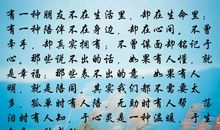 有一种朋友不在生活里，却在生命里；
有一种陪伴不在身边，却在心间。不必
牵手，却真实拥有；不曾谋面却刻于
心。那些说不出的话，如果有人懂，就
是幸福；那些表不出的意，如果有人
明，就是陪同。其实我们都不需要太
多，孤单时有人陪，无助时有人帮，落
泪时有人知，于心灵是一种温暖，于生